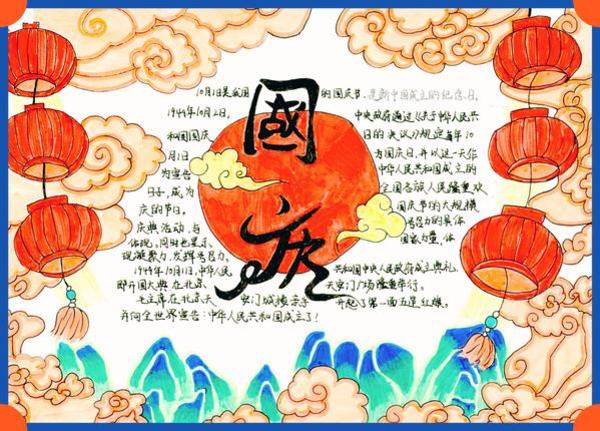 國庆
10月1日是我国 的国庆节,是新中国成立的纪念日。
1949年10月2日, 中央政府通过《关于中华人民共
和国国庆 日的决议》规定每年10
月1日 为国庆日,并以这一天作
为宣告 中华人民共和国成立的
日子,成为 全国各族人民隆重欢
庆的节日。 国庆节的大规模
庆典活动,与 号召力的具体
体现,同时也显示 国家力量、体
现凝聚力、发挥号召力。
1949年10月1日,中华人民 共和国中央人民政府成立典礼,
即开国大典在北京 天安门广场隆重举行。
毛主席在北京天 安门城楼亲手 升起了第一面五星红旗,
并向全世界宣告:中华人民共和国成立了!